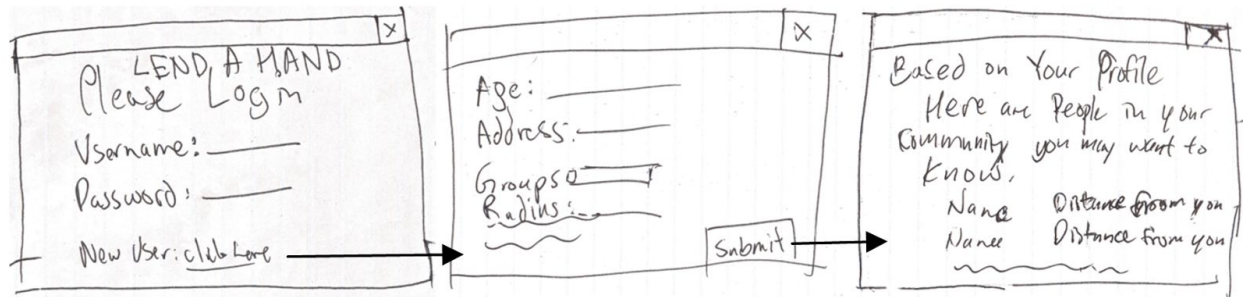 X
LEND A HAND
Please Login
Username:
Password:
New User: click here
X
Age:
Address:
Groups
Radius:
Submit
X
Based on Your Profile
Here are People in your
Community you may want to
Know.
Name Distance from you
Name Distance from you